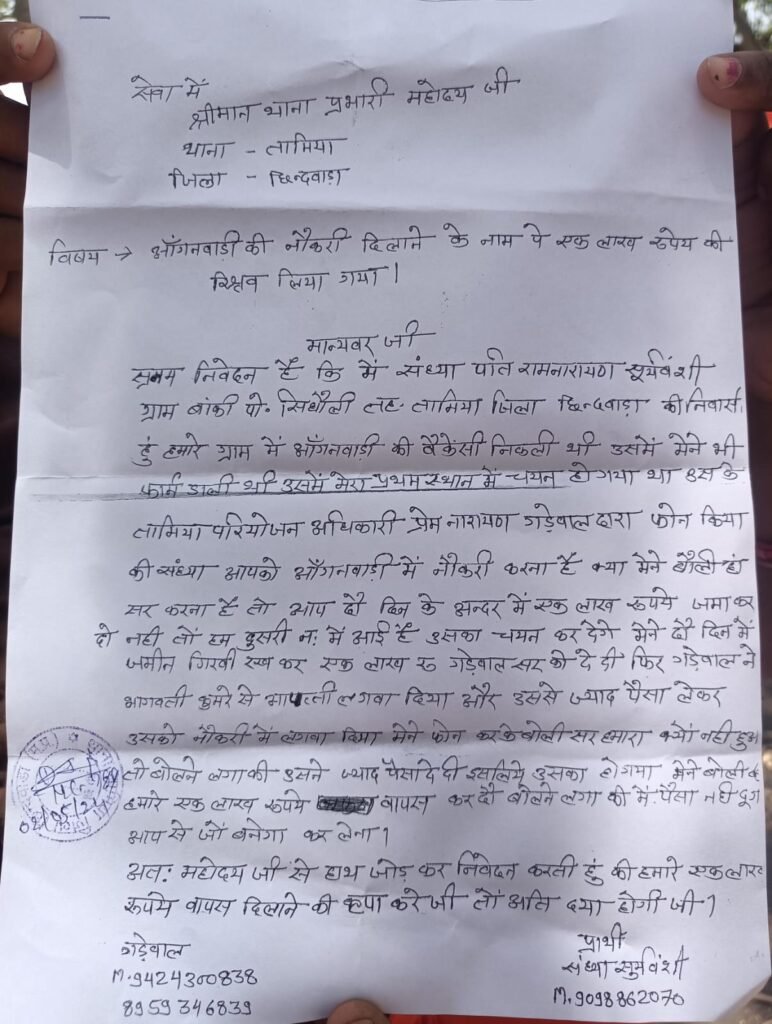 सेवा में
श्रीमान थाना प्रभारी महोदय जी
थाना - तामिया
जिला - छिन्दवाड़ा
विषय → आँगनवाडी की नौकरी दिलाने के नाम पे एक लाख रुपेय की
रिश्वत लिया गया।
मान्यवर जी
निवेदन है कि में संध्या पति रामनारायण सूर्यवंशी
ग्राम बांकी पो. सिधौली तह. तामिया जिला छिन्दवाडा की निवासी
हुं हमारे ग्राम में आँगनवाडी की वैकेंसी निकली थी उसमें मेने भी
फार्म डाली थी उसमें मेरा प्रथम स्थान में चयन हो गया था उस के
तामिया परियोजन अधिकारी प्रेम नारायण गड़ेवाल द्वारा फोन किया
की संध्या आपको आँगनवाडी में नौकरी करना है क्या मेने बोली हां
सर करना है तो आप दो दिन के अन्दर में एक लाख रूपये जमा कर
दो नही तों हम दुसरी न. में आई है उसका चयन कर देगे मेने दो दिन में
जमीन गिरवी रख कर एक लाख रु गड़ेवाल सर को दे दी फिर गड़ेवाल ने
भागवती कुमरे से लगवा दिया और उससे ज्याद पैसा लेकर
उसको नौकरी में लगवा दिया मेने फोन करके बोली सर हमारा क्यों नही हुआ
तो बोलने लगा की उसने ज्याद पैसा दे दी इसलिये उसका हो गया मेने बोली की
हमारे एक लाख रूपये वापस कर दो बोलने लगा की में पैसा नही दूगा
आप से जों बनेगा कर लेना।
अत: महोदय जी से हाथ जोड़ कर निवेदन करती हुं की हमारे एक लाख
रूपये वापस दिलाने की कृपा करे जी तों अति दया होगी जी।
गड़ेवाल
M.9424300838
8959346839
प्रार्थी
संध्या सुर्यवंशी
M.9098862070